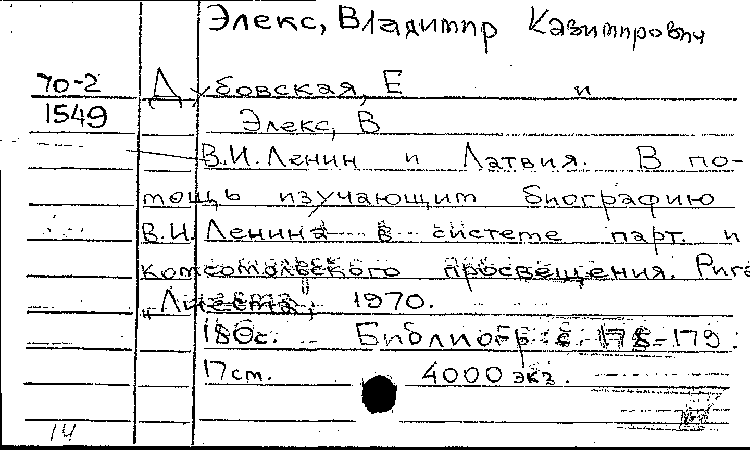 Элекс, Владимир Казимирович
70-2 Дубовская, Е и
1549 Элекс, В
В.И. Ленин и Латвия. В по-
мощь изучающим биографию
В.И. Ленина в системе парт. и
комсомольского просвещения. Рига
"Лиесма", 1970.
180с. Библиогр: с. 178-179.
17см. 4000 экз.
14